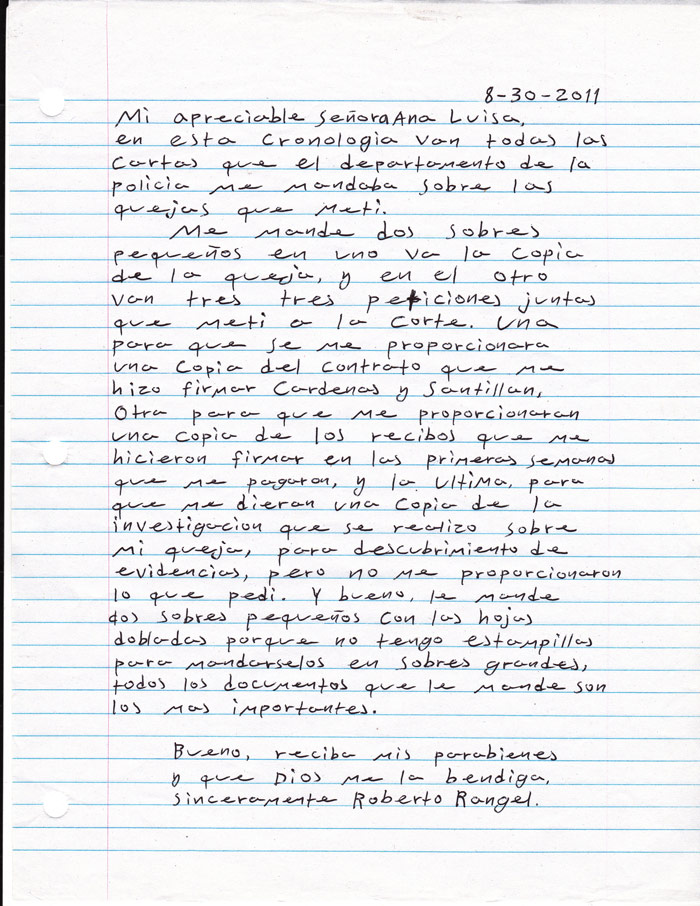 8-30-2011
Mi apreciable señora Ana Luisa,
en esta cronologia van todas las
cartas que el departamento de la
policia me mandaba sobre las
quejas que meti.
Me mande dos sobres
pequeños en uno va la copia
de la queja, y en el otro
van tres tres peticiones juntas
que meti a la corte. Una
para que se me proporcionara
una copia del contrato que me
hizo firmar Cardenas y Santillan,
Otra para que me proporcionaran
una copia de los recibos que me
hicieron firmar en las primeras semanas
que me pagaron, y la ultima, para
que me dieran una copia de la
investigacion que se realizo sobre
mi queja, para descubrimiento de
evidencias, pero no me proporcionaron
lo que pedi. Y bueno, le mande
dos sobres pequeños con las hojas
dobladas porque no tengo estampillas
para mandarselos en sobres grandes,
todos los documentos que le mande son
los mas importantes.
Bueno, reciba mis parabienes
y que Dios me la bendiga,
sinceramente Roberto Rangel.